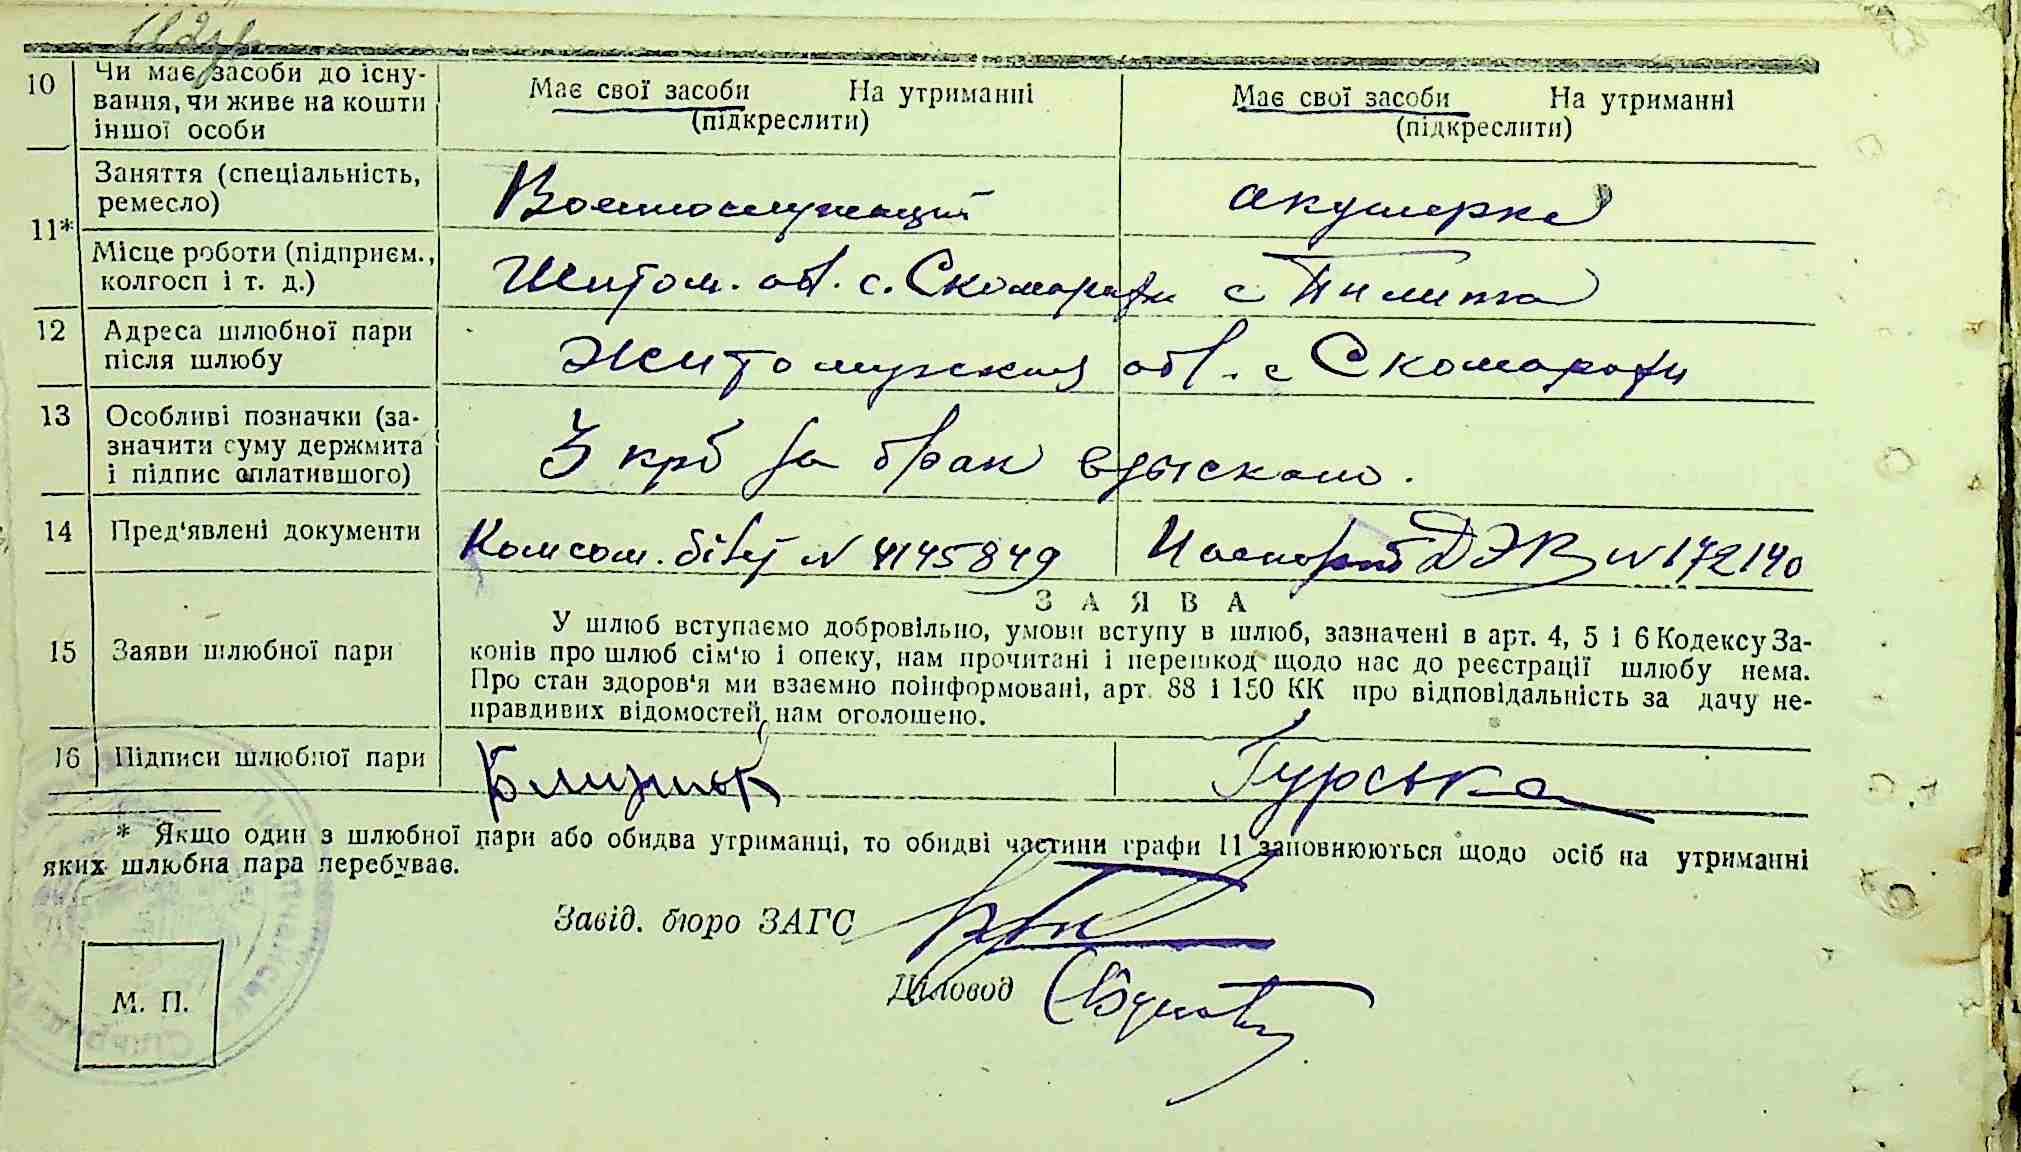 10 Чи має засоби до існу-
вання, чи живе на кошти
іншої особи
Має свої засоби На утриманні
(підкреслити)
Має свої засоби На утриманні
(підкреслити)
11*
Заняття (спеціальність,
ремесло)
Военнослужащий
акушерка
Місце роботи (підприєм.,
колгосп і т. д.)
Житом. обл. с. Скоморохи
с
12 Адреса шлюбної пари
після шлюбу
Житомирская обл. с Скоморохи
13 Особливі позначки (за-
значити суму держмита
і підпис оплатившого)
3 крб за брак взыскано.
14 Пред'явлені документи
Комсом. білет N 4145849
Паспорт N 172140
З А Я В А
15 Заяви шлюбної пари
У шлюб вступаємо добровільно, умови вступу в шлюб, зазначені в арт. 4, 5 і 6 Кодексу За-
конів про шлюб сім'ю і опеку, нам прочитані і перешкод щодо нас до реєстрації шлюбу нема.
Про стан здоров'я ми взаємно поінформовані, арт. 88 і 150 КК про відповідальність за дачу не-
правдивих відомостей нам оголошено.
16 Підписи шлюбної пари
Гурська
* Якщо один з шлюбної пари або обидва утриманці, то обидві частини графи 11 заповнюються щодо осіб на утриманні
яких шлюбна пара перебуває.
Завід. бюро ЗАГС
Діловод
М. П.